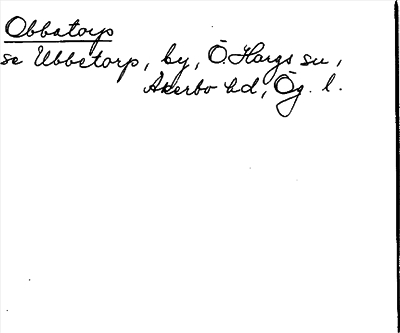 Obbatorp
se Ubbetorp, by, Ö. Hargs sn,
Åkerbo hd, Ög. l.